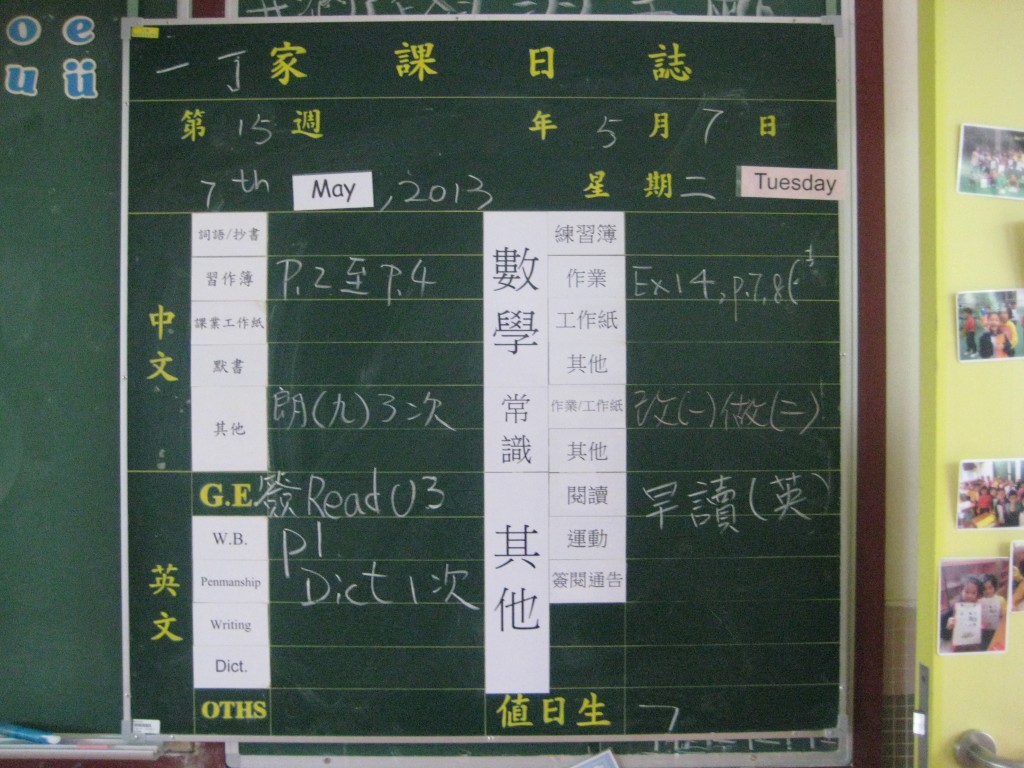 o e
u ü
一丁 家課日誌
第 15 週 年 5 月 7 日
7th May, 2013 星期二 Tuesday
中文
詞語/抄書
習作簿 P.2至P.4
課業工作紙
默書
其他 朗(九)3次
英文
G.E 簽Read U3
W.B. p1
Penmanship Dict 1次
Writing
Dict.
OTHS
數學
練習簿
作業 Ex14, p.7,8(
工作紙
其他
常識
作業/工作紙 改(一)做(二)
其他
其他
閱讀 早讀(英)
運動
簽閱通告
值日生 7